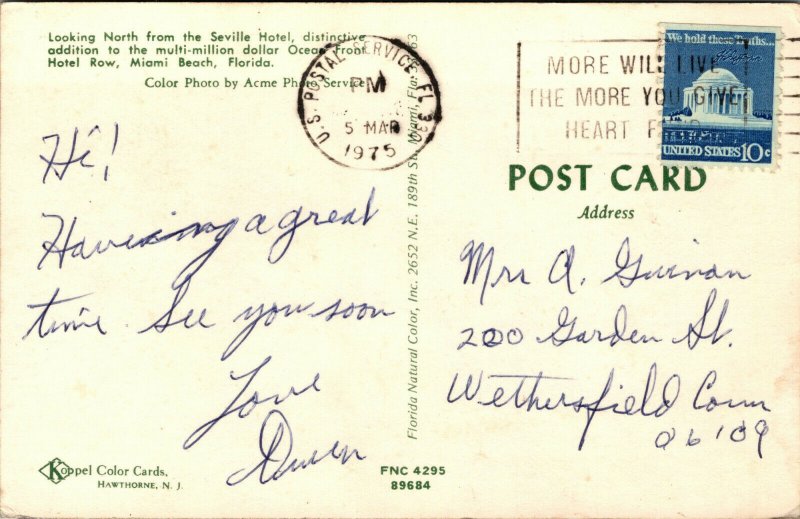 Looking North from the Seville Hotel, distinctive
addition to the multi-million dollar Ocean Front
Hotel Row, Miami Beach, Florida.
Color Photo by Acme Photo Service
U.S. POSTAL SERVICE FL 33
PM
5 MAR
1975
MORE WILL LIVE
THE MORE YOU GIVE
HEART FUND
We hold these Truths...
UNITED STATES 10c
POST CARD
Address
Hi!
Having a great
time. See you soon
Love
Owen
Mrs A. Guinan
200 Garden St.
Wethersfield Conn
06109
Florida Natural Color, Inc. 2652 N.E. 189th St., Miami, Fla.
Koppel Color Cards,
HAWTHORNE, N. J.
FNC 4295
89684